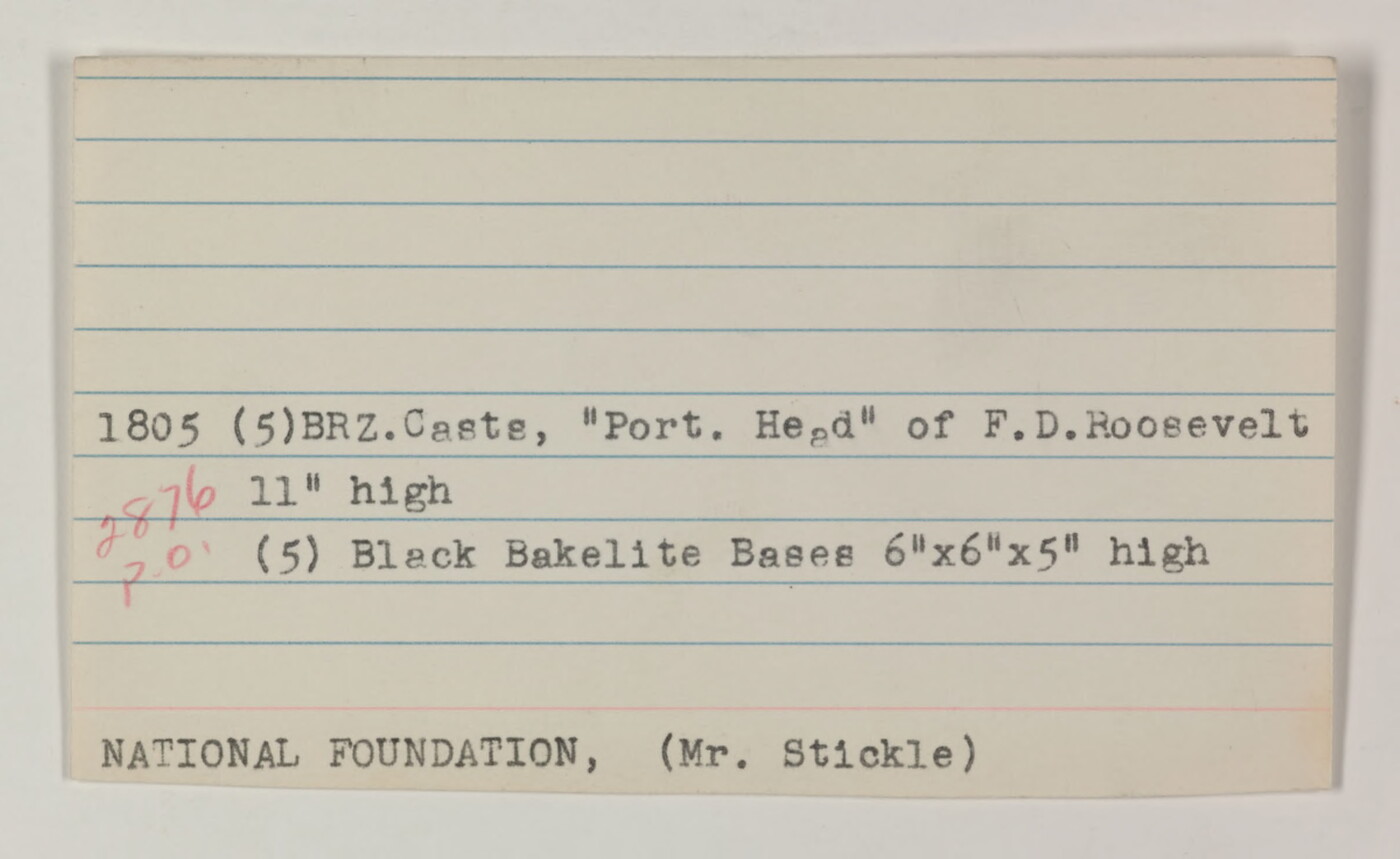 1805 (5)BRZ.Casts, "Port. Head" of F.D.Roosevelt
11" high
2876
P.O.
(5) Black Bakelite Bases 6"x6"x5" high
NATIONAL FOUNDATION, (Mr. Stickle)